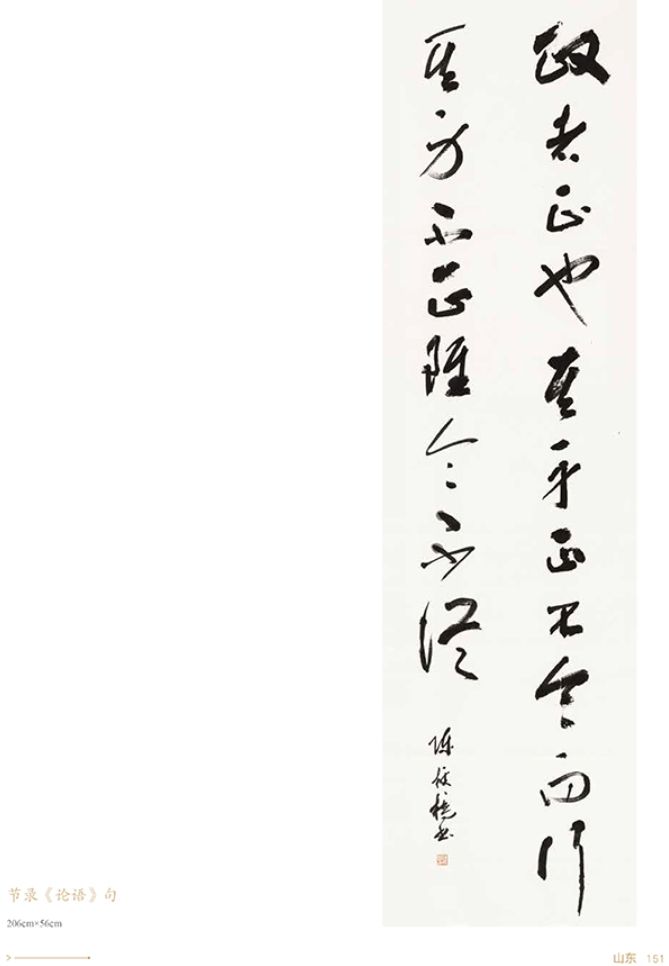 政者正也其身正不令而行
其身不正雖令不從
陳 書
节录《论语》句
206cm×56cm
山东 151